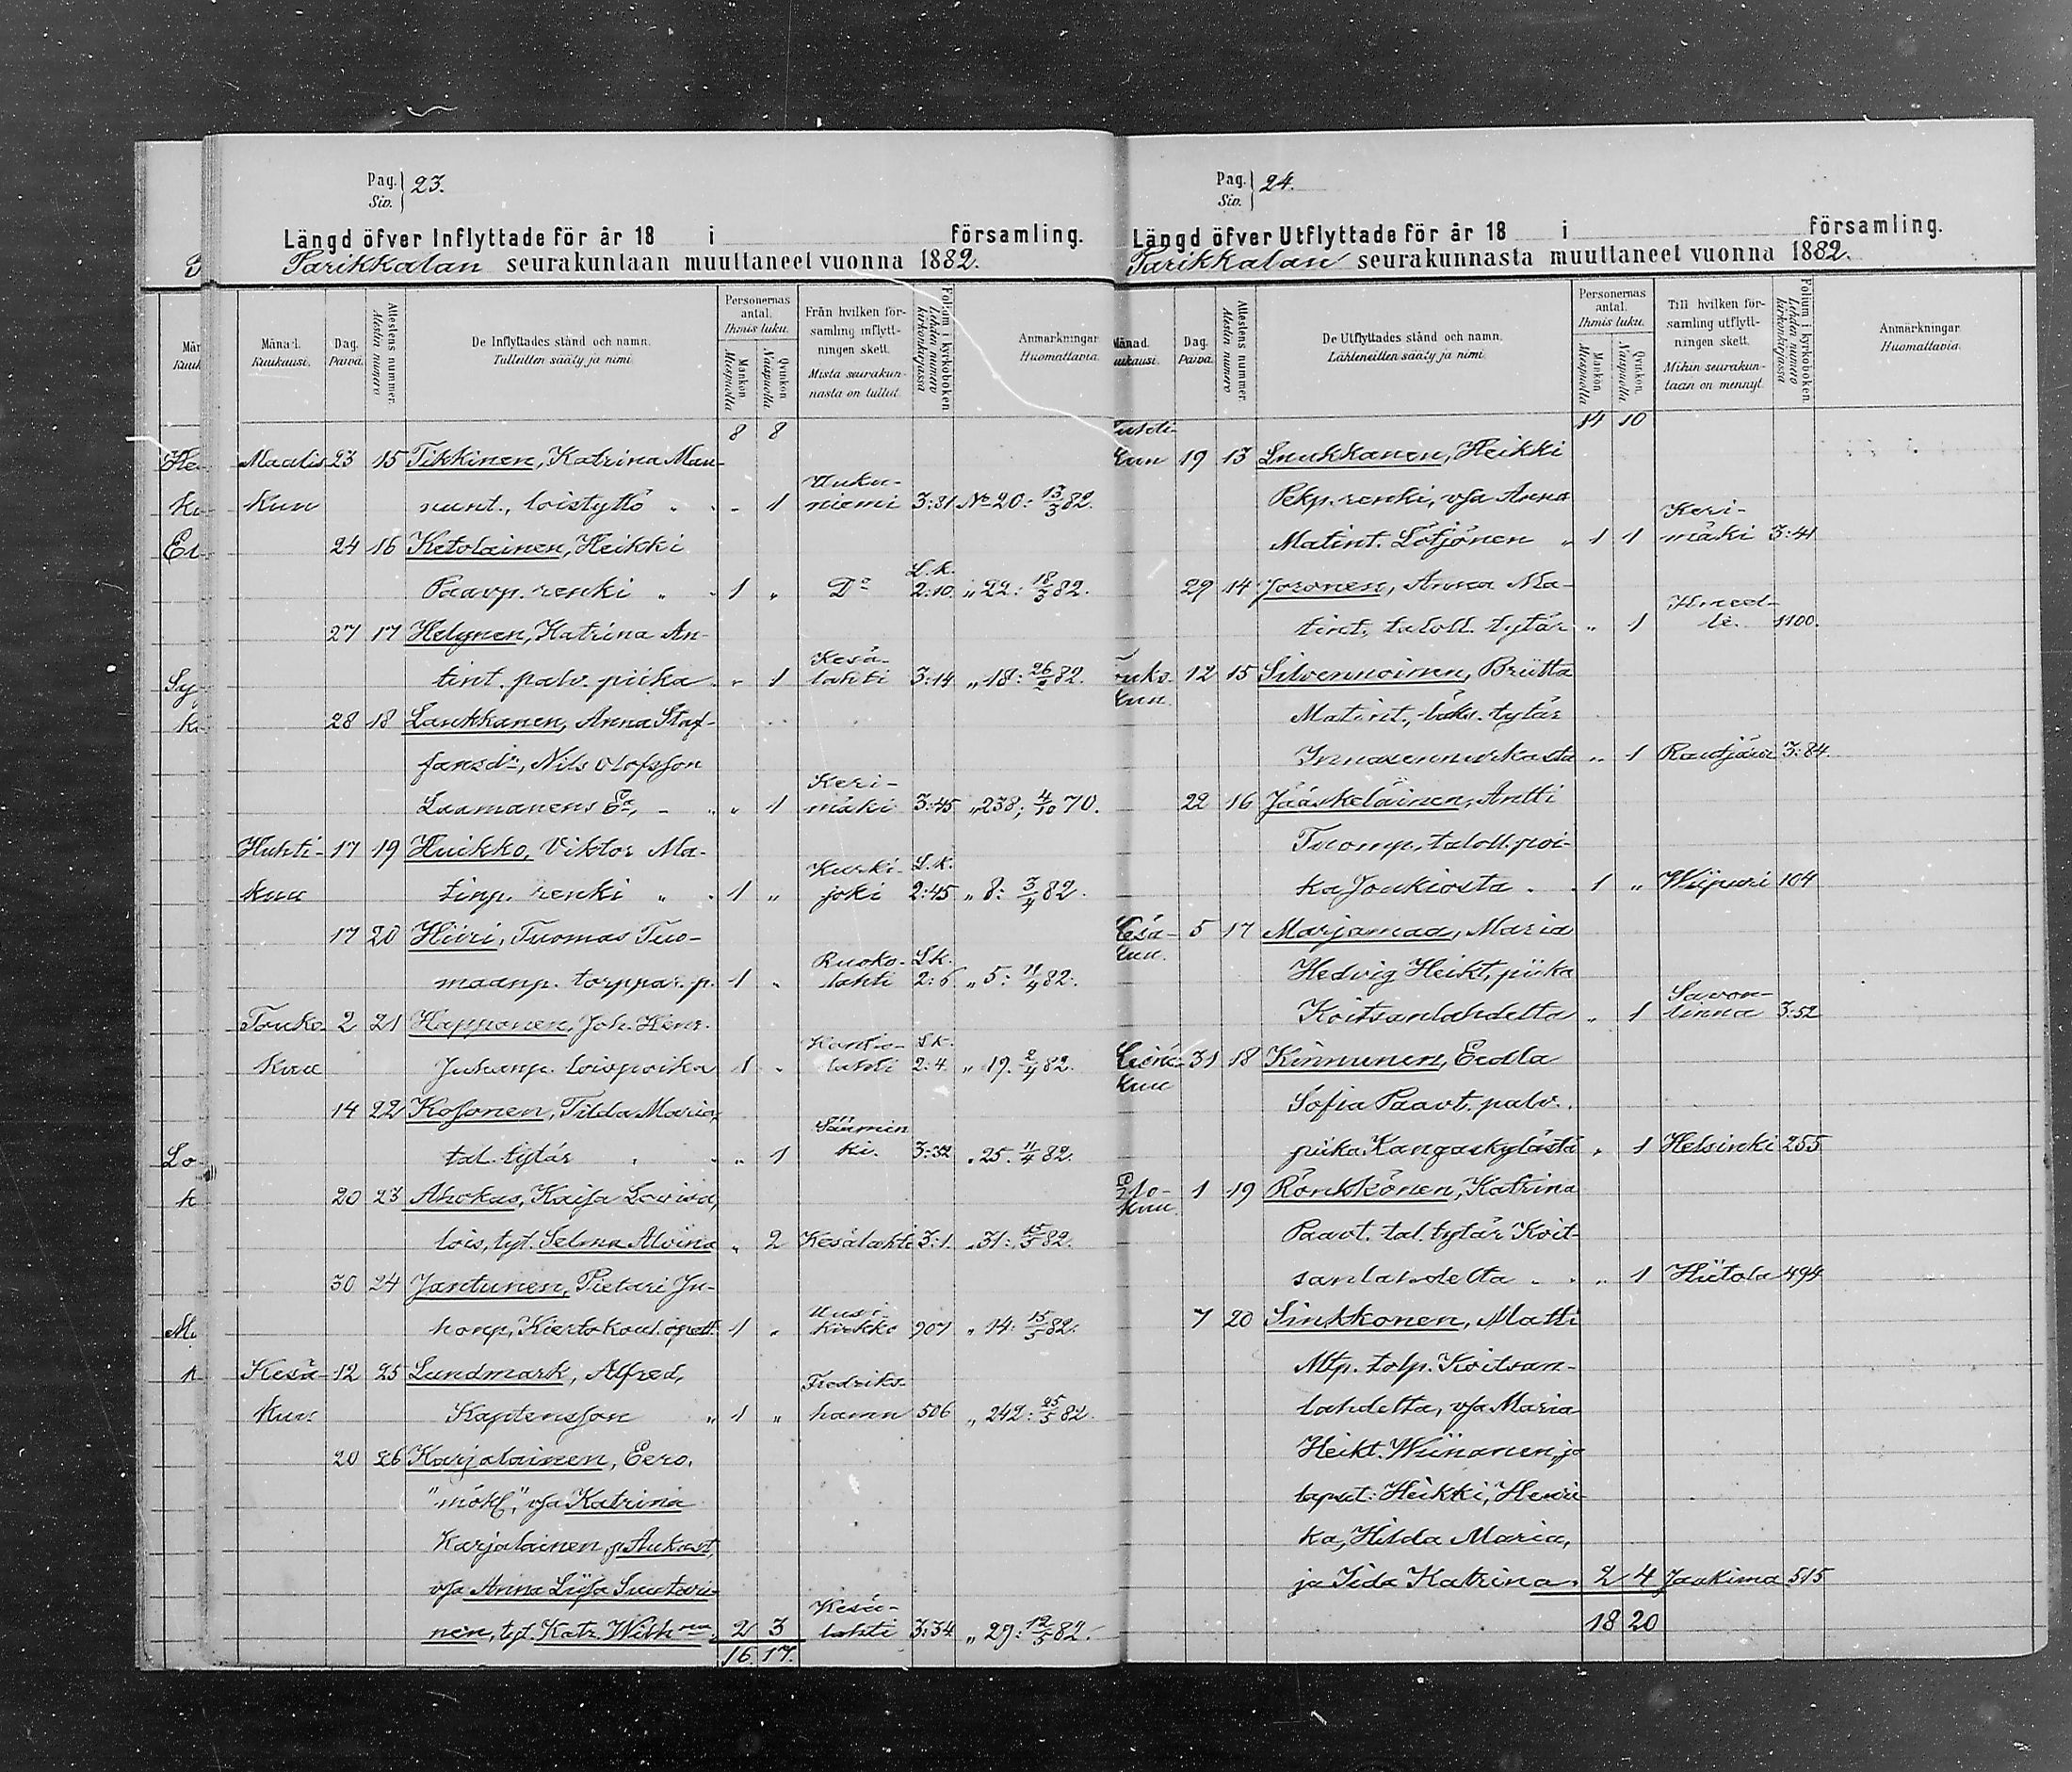 Pag. Siv. 23.
Längd öfver Inflyttade för år 18 i församling.
Parikkalan seurakuntaan muuttaneet vuonna 1882.
Månad. Kuukausi. Dag. Päivä. Attestens nummer. Atestin numero De Inflyttades stånd och namn. Tulleitten sääty ja nimi. Personernas antal. Ihmis luku. Mankön Miespuolia Qvinkön Naispuolia Från hvilken församling inflyttningen skett. Mistä seurakunnasta on tullut. Folium i kyrkoboken. Lehden numero kirkonkirjassa Anmärkningar. Huomattavia.
8 8
Maalis 23 15 Tikkinen, Katrina Mau-
kuu nunt., loistyttö „ 1 Uukuniemi 3:81 No 20: 13/3 82.
24 16 Ketolainen, Heikki
Paavp. renki „ 1 „ Do L.k. 2:10. „ 22: 18/3 82.
27 17 Helynen, Katrina An-
tint. palv. piika „ 1 Kesälahti 3:14 „ 18: 26/2 82.
28 18 Laukkanen, Anna Staf-
fansdr, Nils Olofsson
Laamanens Ea, „ 1 Kerimäki 3:45 „ 238; 4/10 70.
Huhti- 17 19 Huikko, Viktor Ma-
kuu tinp. renki „ 1 „ Kurkijoki L.k. 2:45 „ 8: 3/4 82.
17 20 Hiiri, Tuomas Tuo-
maanp. torppar. p. 1 „ Ruokolahti L.k. 2:6 „ 5: 11/4 82.
Touko 2 21 Happonen, Joh. Henr.
kuu Juhanp. loispoika 1 „ Kontiolahti L.k. 2:4. „ 19. 2/4 82.
14 22 Kosonen, Tilda Maria,
tal. tytär „ 1 Sääminki. 3:32 „ 25. 11/4 82.
20 23 Ahokas, Kaisa Lovisa,
lois, tyt. Selma Alvina „ 2 Kesälahti 3:1. „ 31: 15/5 82.
30 24 Jantunen, Pietari Ju-
honp, Kiertokoul. opett. 1 „ Uusikirkko 907 „ 14: 15/5 82.
Kesä- 12 25 Lundmark, Alfred,
kuu Kaptensson „ 1 „ Fredrikshamn 506 „ 242: 25/5 82.
20 26 Karjalainen, Eero,
"mökl," vsa Katrina
Karjalainen, p. Aukust,
vsa Anna Liisa Suutari-
nen, tyt. Katr. Wilh. 2 3 Kesälahti 3:34. „ 29: 12/5 82.
16. 17.
Pag. Siv. 24.
Längd öfver Utflyttade för år 18 i församling.
Parikkalan seurakunnasta muuttaneet vuonna 1882.
Månad. Kuukausi. Dag. Päivä. Attestens nummer. Atestin numero De Utflyttades stånd och namn. Lähteneitten sääty ja nimi. Personernas antal. Ihmis luku. Mankön Miespuolia Qvinkön Naispuolia Till hvilken församling utflyttningen skett. Mihin seurakuntaan on mennyt. Folium i kyrkoboken. Lehden numero kirkonkirjassa Anmärkningar. Huomattavia.
14 10
Huhti-
kuu 19 13 Luukkanen, Heikki
Pekp. renki, vsa Anna
Matint. Lötjönen „ 1 1 Kerimäki 3:41
29 14 Joronen, Anna Ma-
tint, taloll. tytär „ 1 1100.
Touko- 12 15 Silvennoinen, Briitta
kuu Matint., tytär
„ 1 Rautjärvi 3:84.
22 16 Jääskeläinen, Antti
Tuomp., taloll. poi-
ka Joukiosta 1 „ Wiipuri 104
Kesä- 5 17 Marjamaa, Maria
kuu. Hedvig Heikt, piika
Koitsanlahdelta „ 1 Savonlinna 3:52
Heinä- 31 18 Kinnunen, Eedla
kuu Sofia Paavt. palv.
piika Kangaskylästä „ 1 Helsinki 255
Elo- 1 19 Rönkkönen, Katrina
kuu Paavt. tal. tytär Koit-
sanlahdelta „ 1 Hiitola 494
7 20 Sinkkonen, Matti
Mtp. tolp. Koitsan-
lahdelta, vsa Maria
Heikt. Wiinanen, ja
lapset: Heikki, Henri-
ka, Hilda Maria,
ja Iida Katrina. 2 4 Jaakima 515
18 20